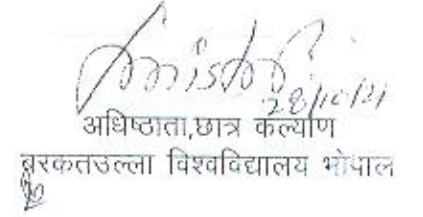 28/10/21
अधिष्ठाता,छात्र कल्याण
बरकतउल्ला विश्वविद्यालय भोपाल